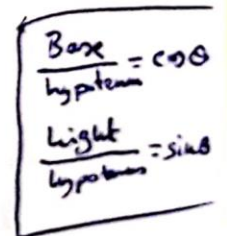 Base
hypotenus = cosθ
hight
hypotenus = sinθ